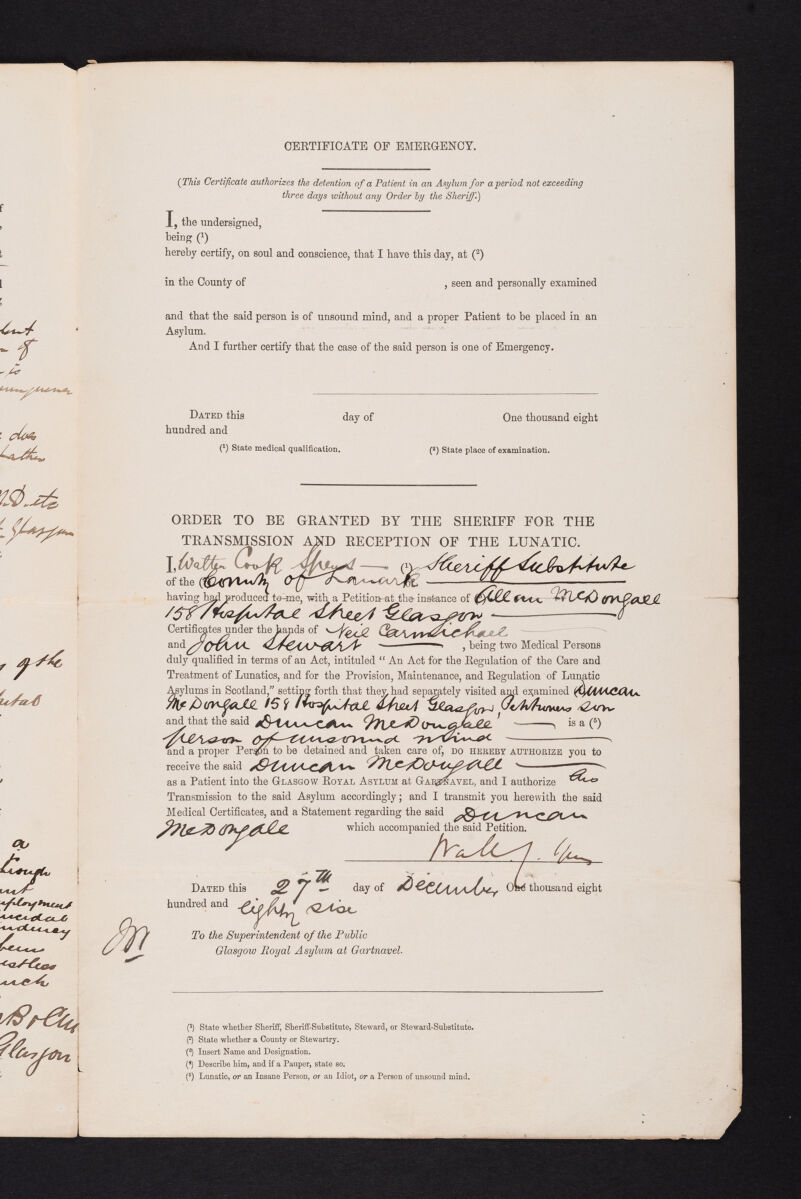 f
,
t
of
is
does
M.D. etc
Glasgow
of the
a
through
employment
suicidal
tendency
been
restless
much
Glasgow
CERTIFICATE OF EMERGENCY.
(This Certificate authorizes the detention of a Patient in an Asylum for a period not exceeding
three days without any Order by the Sheriff.)
I, the undersigned,
being (¹)
hereby certify, on soul and conscience, that I have this day, at (²)
in the County of , seen and personally examined
and that the said person is of unsound mind, and a proper Patient to be placed in an
Asylum.
And I further certify that the case of the said person is one of Emergency.
DATED this day of One thousand eight
hundred and
(¹) State medical qualification. (²) State place of examination.
ORDER TO BE GRANTED BY THE SHERIFF FOR THE
TRANSMISSION AND RECEPTION OF THE LUNATIC.
I, Walter Cook Spens (¹) Sheriff Substitute
of the County of Lanark
having had produced to me, with a Petition at the instance of Allan McDongall
158 Hospital Street Glasgow
Certificates under the hands of Neil Carmichael
and John Stewart , being two Medical Persons
duly qualified in terms of an Act, intituled "An Act for the Regulation of the Care and
Treatment of Lunatics, and for the Provision, Maintenance, and Regulation of Lunatic
Asylums in Scotland," setting forth that they had separately visited and examined Duncan
McDongall 158 Hospital Street Glasgow, Petitioners son
and that the said Duncan McDougall is a (⁵)
person of unsound mind
and a proper Person to be detained and taken care of, DO HEREBY AUTHORIZE you to
receive the said Duncan McDougall
as a Patient into the GLASGOW ROYAL ASYLUM at GARTNAVEL, and I authorize his
Transmission to the said Asylum accordingly; and I transmit you herewith the said
Medical Certificates, and a Statement regarding the said Duncan
McDongall which accompanied the said Petition.
DATED this 27th day of December One thousand eight
hundred and eighty six
To the Superintendent of the Public
Glasgow Royal Asylum at Gartnavel.
(¹) State whether Sheriff, Sheriff-Substitute, Steward, or Steward-Substitute.
(²) State whether a County or Stewartry.
(³) Insert Name and Designation.
(⁴) Describe him, and if a Pauper, state so.
(⁵) Lunatic, or an Insane Person, or an Idiot, or a Person of unsound mind.